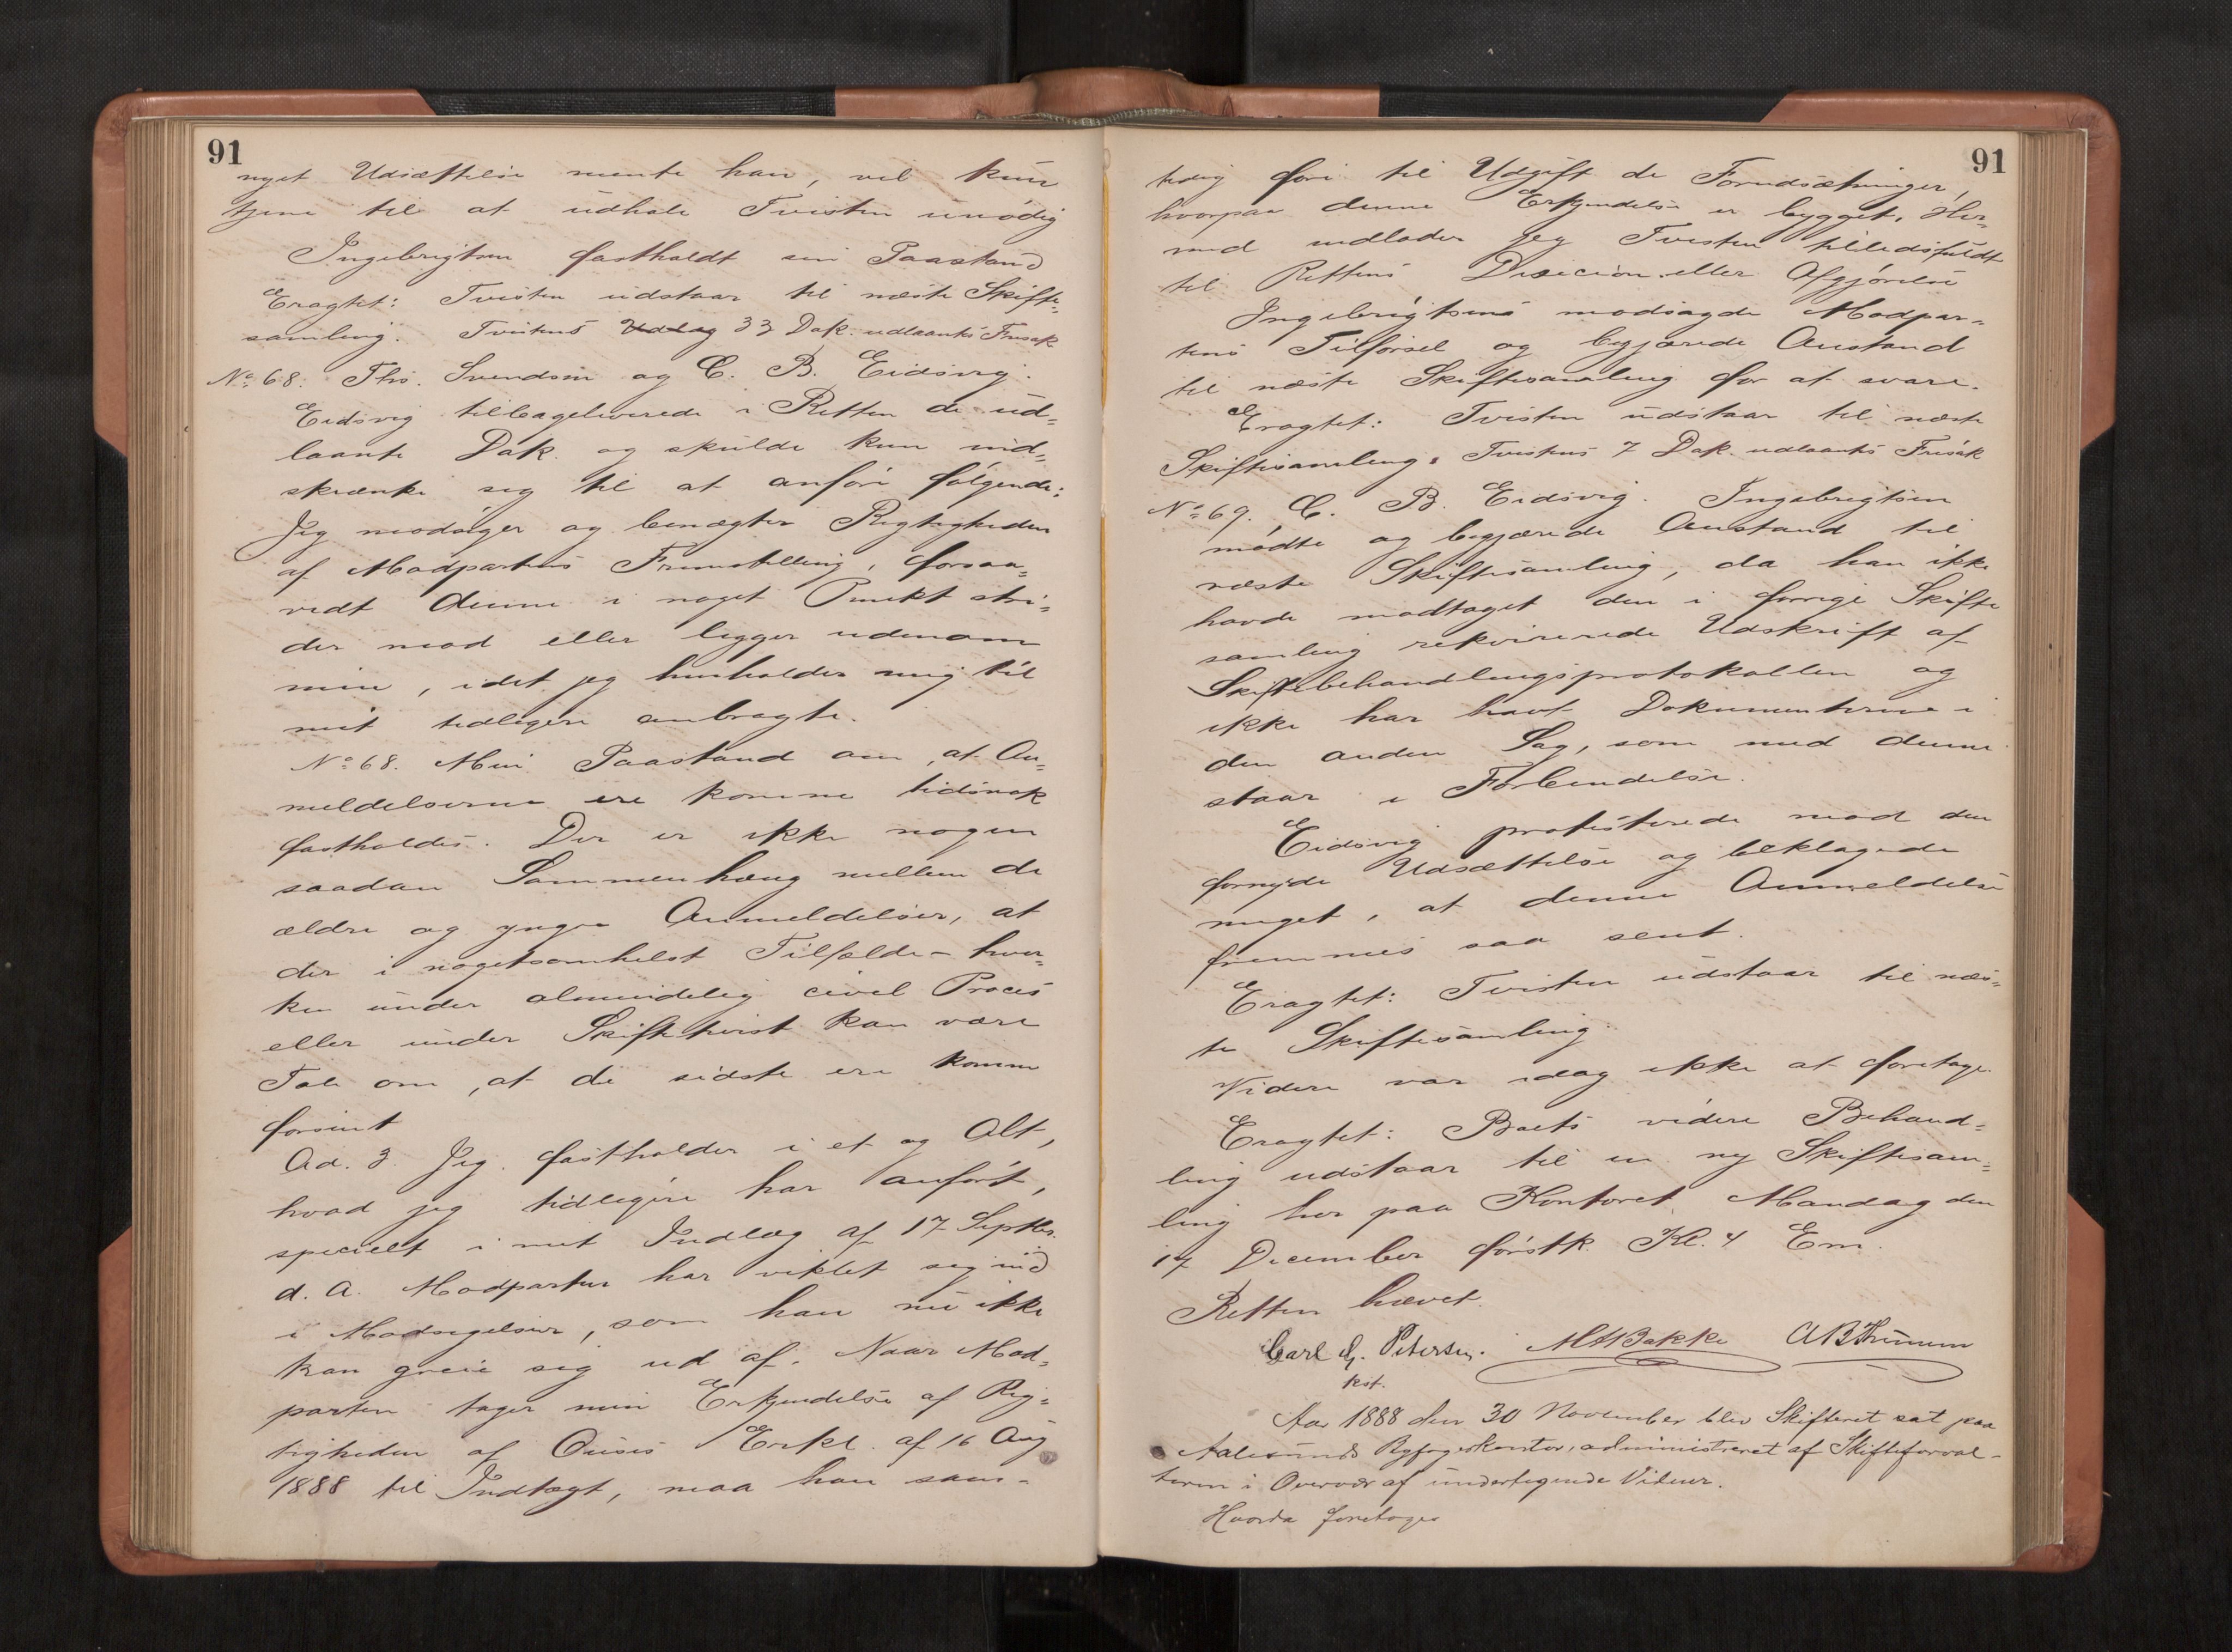 91
nyet Udsættelse mente han, vil kun
tjene til at udhale Tvisten unødig
Ingebrigtsen fastholdt sin Paastand
Eragtet: Tvisten udstaar til næste Skifte-
samling. Tvistens Udlag 33 Dok. udlaants Frisak
No 68. Ths. Svendsen og C. B. Eidsvig.
Eidsvig tilbageleverede i Retten de ud-
laante Dok. og skulde kun ind-
skrænke sig til at anføre følgende:
Jeg modsiger og benægter Rigtigheden
af Modpartens Fremstilling, forsaa-
vidt denne i noget Punkt stri-
der mod eller ligger udenom
min, idet jeg henholder mig til
mit tidligere anbragte.
No 68. Min Paastand om, at An-
meldelserne ere komne tidsnok
fastholdes. Der er ikke nogen
saadan Sammenhæng mellem de
ældre og yngre Anmeldelser, at
der i nogetsomhelst Tilfælde - hver-
ken under almindelig civil Proces
eller under Skiftetvist kan være
Tale om, at de sidste ere komne
forsent
Ad. 3. Jeg fastholder i et og Alt,
hvad jeg tidligere har anført,
specielt i mit Indlæg af 17 Septbr.
d. A. Modparten har viklet sig ind
i Modsigelser, som han nu ikke
kan greie sig ud af. Naar Mod-
parten tager min Erkjendelse af Rig-
tigheden af Erkl. af 16 Aug
1888 til Indtægt, maa han sam-
91
tidig føre til Udgift de Forudsætninger,
hvorpaa denne Erkjendelse er bygget. Her-
med indlader jeg Tvisten tilledsfuldt
til Rettens Decicion eller Afgjørelse
Ingebrigtsens modsagde Modpar-
tens Tilførsel og begjærede Anstand
til næste Skiftesamling for at svare.
Eragtet: Tvisten udstaar til næste
Skiftesamling. Tvistens 7 Dok. udlaants Frisak
No 69. C. B. Eidsvig. Ingebrigtsen
mødte og begjærede Anstand til
næste Skiftesamling, da han ikke
havde modtaget den i forrige Skifte
samling rekvirerede Udskrift af
Skiftebehandlingsprotokollen og
ikke har havt Dokumenterne i
den anden Sag, som med denne
staar i Forbindelse.
Eidsvig protesterede mod den
fornyede Udsættelse og beklagede
meget, at denne Anmeldelse
fremmes saa sent.
Eragtet: Tvisten udstaar til næs-
te Skiftesamling.
Videre var idag ikke at foretage.
Eragtet: Boets videre Behand-
ling udstaar til en ny Skiftesam-
ling her paa Kontoret Mandag den
17 December førstk. Kl. 4 Em.
Retten hævet.
Carl G. Petersen. M A Bakke A B Thunem
kst.
Aar 1888 den 30 November blev Skifteret sat paa
Aalesunds Byfogedkontor, administreret af Skifteforval-
teren i Overvær af undertegnede Vidner.
Hvorda foretoges